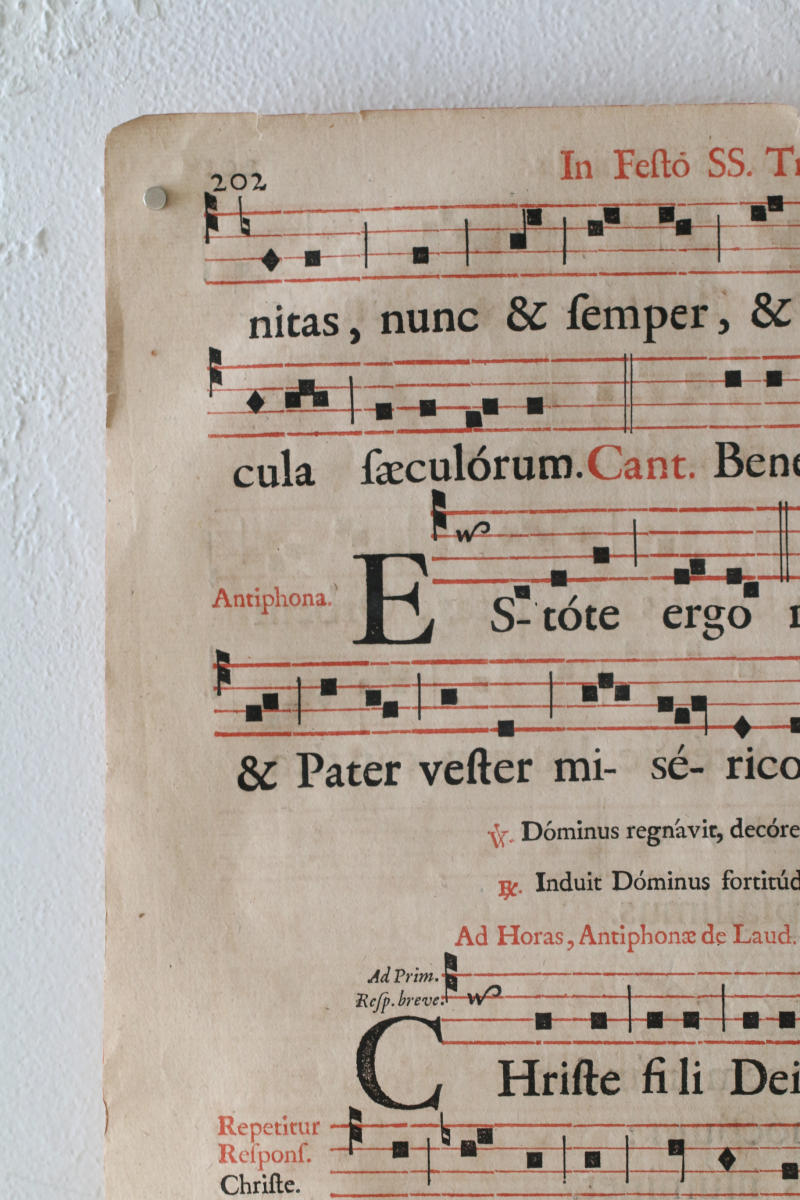 202
In Feſtó SS.
nitas, nunc & ſemper, &
cula ſæculórum. Cant. Bene
Antiphona. ES- tóte ergo
& Pater veſter mi- sé- rico
℣. Dóminus regnávit, decóre
℟. Induit Dóminus fortitúd
Ad Horas, Antiphonæ de Laud.
Ad Prim.
Reſp. breve.
CHriſte fili Dei
Repetitur
Reſponſ.
Chriſte.